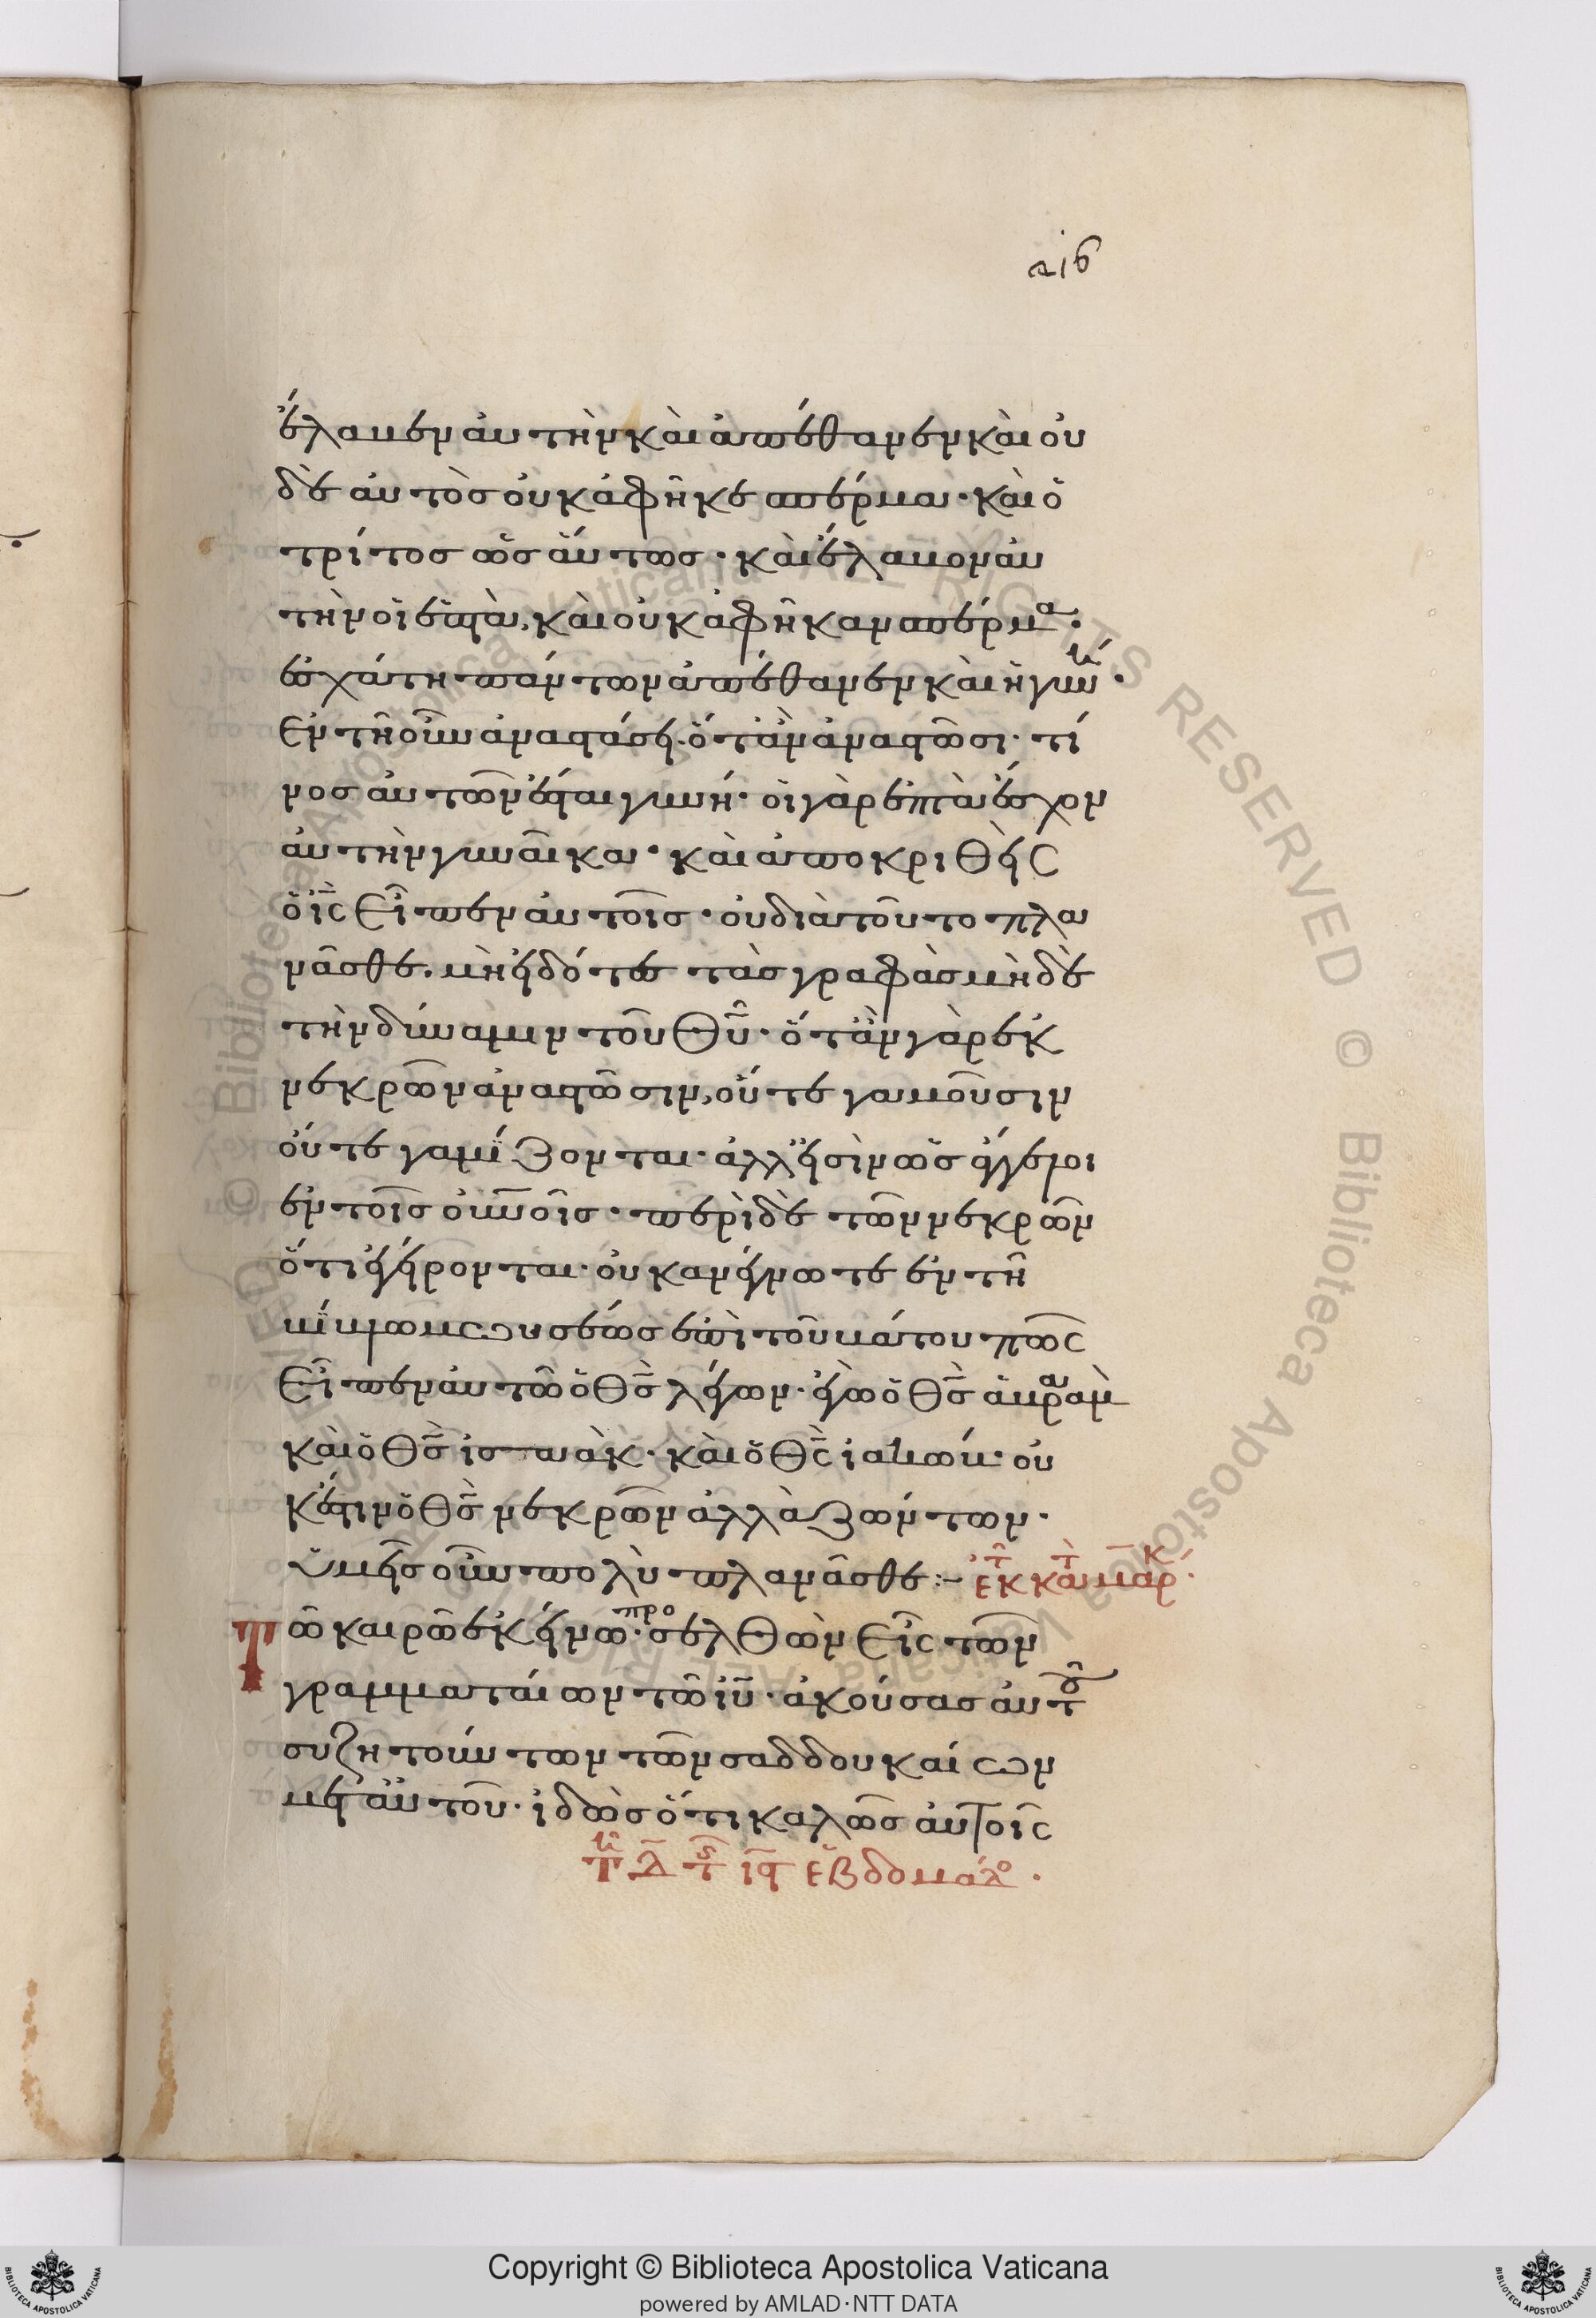 216
ἔλαβεν αὐτὴν καὶ ἀπέθανεν καὶ οὐ
δὲ αὐτὸσ οὐκ ἀφῆκε σπέρμα · καὶ ὁ
τρίτοσ ὡσ αὔτωσ · καὶ ἔλαβον αὐ
τὴν οἱ ἑπτὰ, καὶ οὐκ ἀφῆκαν σπέρμα ·
ἐσχάτη πάντων ἀπέθανεν καὶ ἡ γυνή ·
Ἐν τῆ οὖν ἀναστάσει · ὅτὰν ἀναστῶσι · τί
νοσ αὐτῶν ἔσται γυνή · οἱ γὰρ ἑπτὰ ἔσχον
αὐτὴν γυναῖκα · καὶ ἀποκριθεὶς
ὁ ις̅ εἶπεν αὐτοῖσ · οὐ διὰ τοῦτο πλα
νᾶσθε. μὴ εἰδότεσ τὰσ γραφὰσ μὴ δὲ
τὴν δύναμιν τοῦ θυ̅ · ὅτὰν γὰρ ἐκ
νεκρῶν ἀναστῶσιν, οὔτε γαμοῦσιν
οὔτε γαμίζονται · ἀλλ' εἰσὶν ὡσ ἄγγελοι
ἐν τοῖσ οὐνοῖσ · περὶ δὲ τῶν νεκρῶν
ὅτι ἐγείρονται · οὐκ ἀνέγνωτε ἐν τῆ
βίβλω μωυσέωσ ἐπὶ τοῦ βάτου πῶς
Εἶπεν αὐτῶ ὁ θσ̅ λέγων · ἐγὼ ὁ θσ̅ ἀβραὰμ
καὶ ὁ θσ̅ ἰσαὰκ · καὶ ὁ θς̅ ἰακώβ · οὐ
κ ἔστιν ὁ θσ̅ νεκρῶν ἀλλὰ ζώντων ·
ὑμεῖσ οὖν πολὺ πλανᾶσθε :– ἐκ τ κατ μαρκ ·
Τῶ καιρῶ ἐκείνω · προσελθὼν εἷς τῶν
γραμματαίων τῶ ιυ̅ · ἀκούσασ αὐτῶ
συζητούντων τῶν σαδδουκαίων
μετ' αὐτοῦ · ἰδὼσ ὅτι καλῶσ αὐτοῖς
ἑβδομάδο ·
Copyright © Biblioteca Apostolica Vaticana
powered by AMLAD·NTT DATA